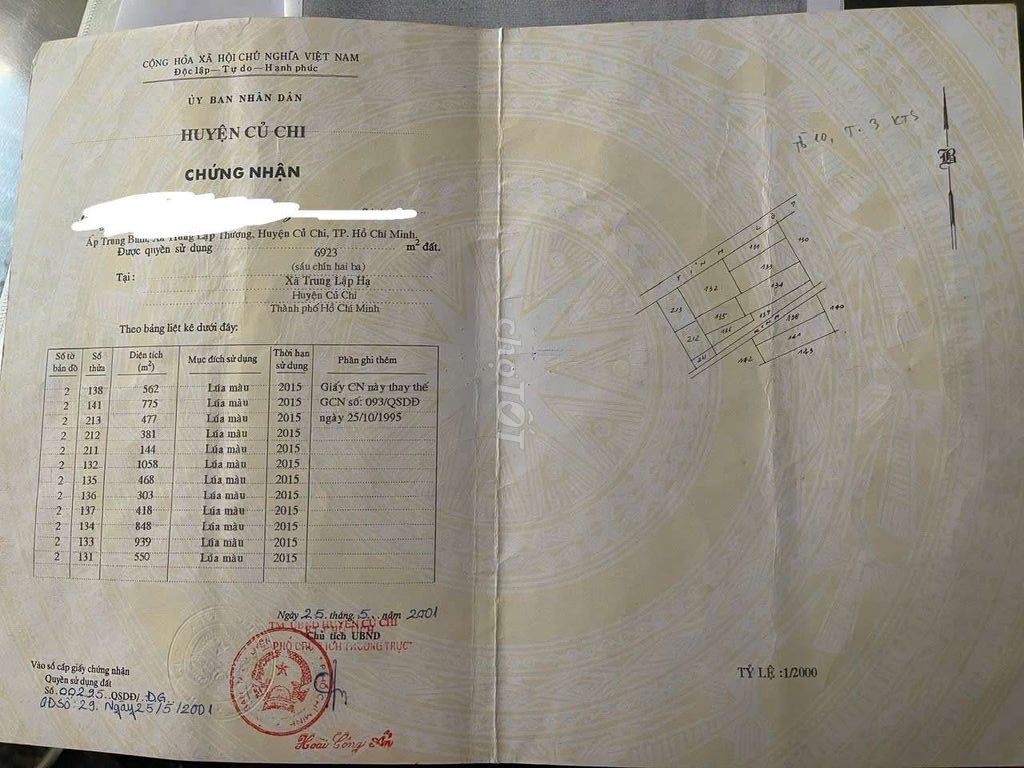 CỘNG HÒA XÃ HỘI CHỦ NGHĨA VIỆT NAM
Độc lập — Tự do — Hạnh phúc
ỦY BAN NHÂN DÂN
HUYỆN CỦ CHI
CHỨNG NHẬN
Ấp Trung Bình, Xã Trung Lập Thượng, Huyện Củ Chi, TP. Hồ Chí Minh.
Được quyền sử dụng 6923 m² đất.
(sáu chín hai ba)
Tại : Xã Trung Lập Hạ
Huyện Củ Chi
Thành phố Hồ Chí Minh
Theo bảng liệt kê dưới đây:
Số tờ bản đồ Số thửa Diện tích (m²) Mục đích sử dụng Thời hạn sử dụng Phần ghi thêm
2 138 562 Lúa màu 2015 Giấy CN này thay thế
2 141 775 Lúa màu 2015 GCN số: 093/QSDĐ
2 213 477 Lúa màu 2015 ngày 25/10/1995
2 212 381 Lúa màu 2015
2 211 144 Lúa màu 2015
2 132 1058 Lúa màu 2015
2 135 468 Lúa màu 2015
2 136 303 Lúa màu 2015
2 137 418 Lúa màu 2015
2 134 848 Lúa màu 2015
2 133 939 Lúa màu 2015
2 131 550 Lúa màu 2015
Ngày 25 tháng 5 năm 2001
TM. UBND HUYỆN CỦ CHI
Chủ tịch UBND
PHÓ CHỦ TỊCH THƯỜNG TRỰC
Vào sổ cấp giấy chứng nhận
Quyền sử dụng đất
Số 00295 QSDĐ/ ĐG
QĐ SỐ: 29. Ngày 25/5/2001
Hoài Công Ẩn
CHỢ TỐT
10, T. 3 KTS
B
TỈNH LỘ 7
131
130
133
132
134
213
135
137
140
136
KINH
138
212
141
211
142
143
TỶ LỆ :1/2000